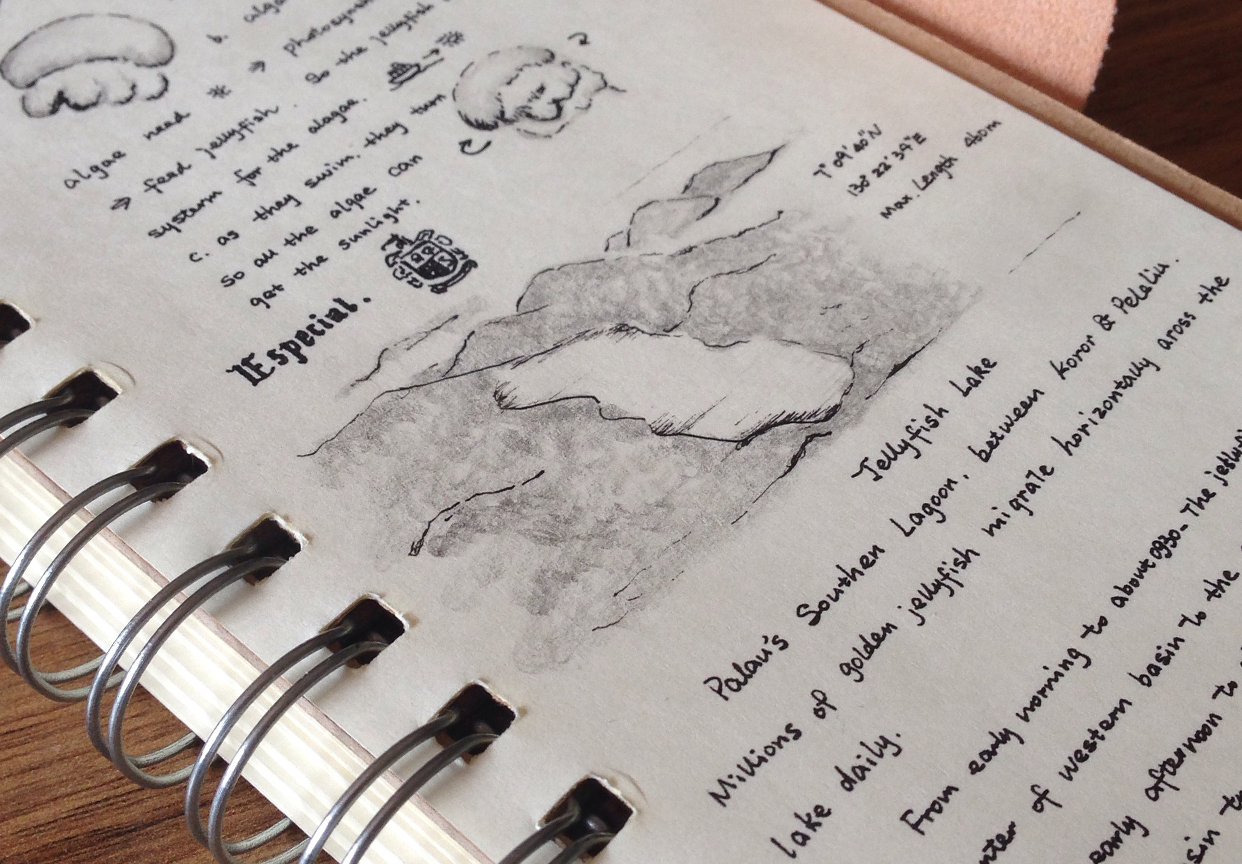 b. algae
algae need ⇒ photosyn
⇒ feed jellyfish. So the jellyfish
system for the alagae.
c. as they swim, they turn
so all the algae can
get the sunlight.
Especial.
7° 09' 40" N
130° 22' 39" E
Max. Length 460m
Jellyfish Lake
Palau's Southen Lagoon, between Koror & Peleliu.
Millions of golden jellyfish migrate horizontally aross the
lake daily.
From early morning to about 0930 - The jellyfish
nter of western basin to the
early afternoon to
sin to